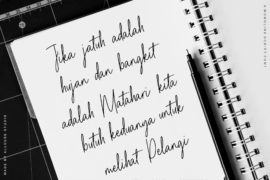 Jika jatuh adalah
hujan dan bangkit
adalah Matahari kita
butuh keduanya untuk
melihat Pelangi